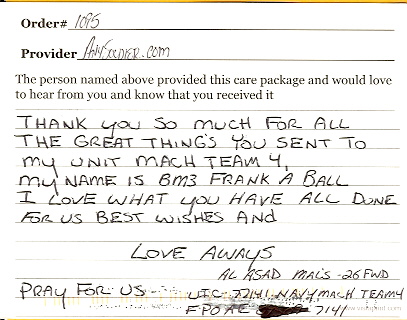 Order# 1095
Provider AnySoldier.com
The person named above provided this care package and would love
to hear from you and know that you received it
THANK YOU SO MUCH FOR ALL
THE GREAT THING'S YOU SENT TO
MY UNIT MACH TEAM 4,
MY NAME IS BM3 FRANK A BALL
I LOVE WHAT YOU HAVE ALL DONE
FOR US BEST WISHES AND
LOVE AWAYS
AL ASAD MAL'S-26FWD
PRAY FOR US
UTC-77141, NAVY MACH TEAM4
FPO AE 7141